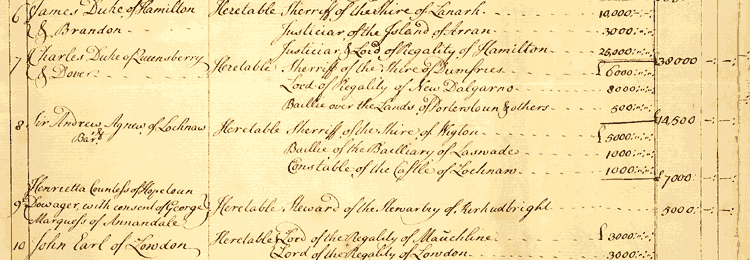 6 James Duke of Hamilton Heretable Sherriff of the Shire of Lanark 10,000
& Brandon Justiciar of the Island of Arran 3000
Justiciar & Lord of Regality of Hamilton 25,000 38000
7 Charles Duke of Queensberry Heretable Sherriff of the Shire of Dumfries £6000
& Dover Lord of Regality of New Dalgarno 8000
Baillie over the Lands of & others 500 14,500
8 Sir Andrew Agnew of Lochnaw Heretable Sherriff of the Shire of Wigton £5000
Bart. Baillie of the Bailliary of 1000
Constable of the Castle of Lochnaw 1000 £7000
Henrietta Countess of Hopetoun
9 Dowager, with consent of George Heretable Steward of the Stewartry of Kirkudbright 5000
Marquess of Annandale
10 John Earl of Lowdon Heretable Lord of the Regality of Mauchline £3000
Lord of the Regality of Lowdon 3000